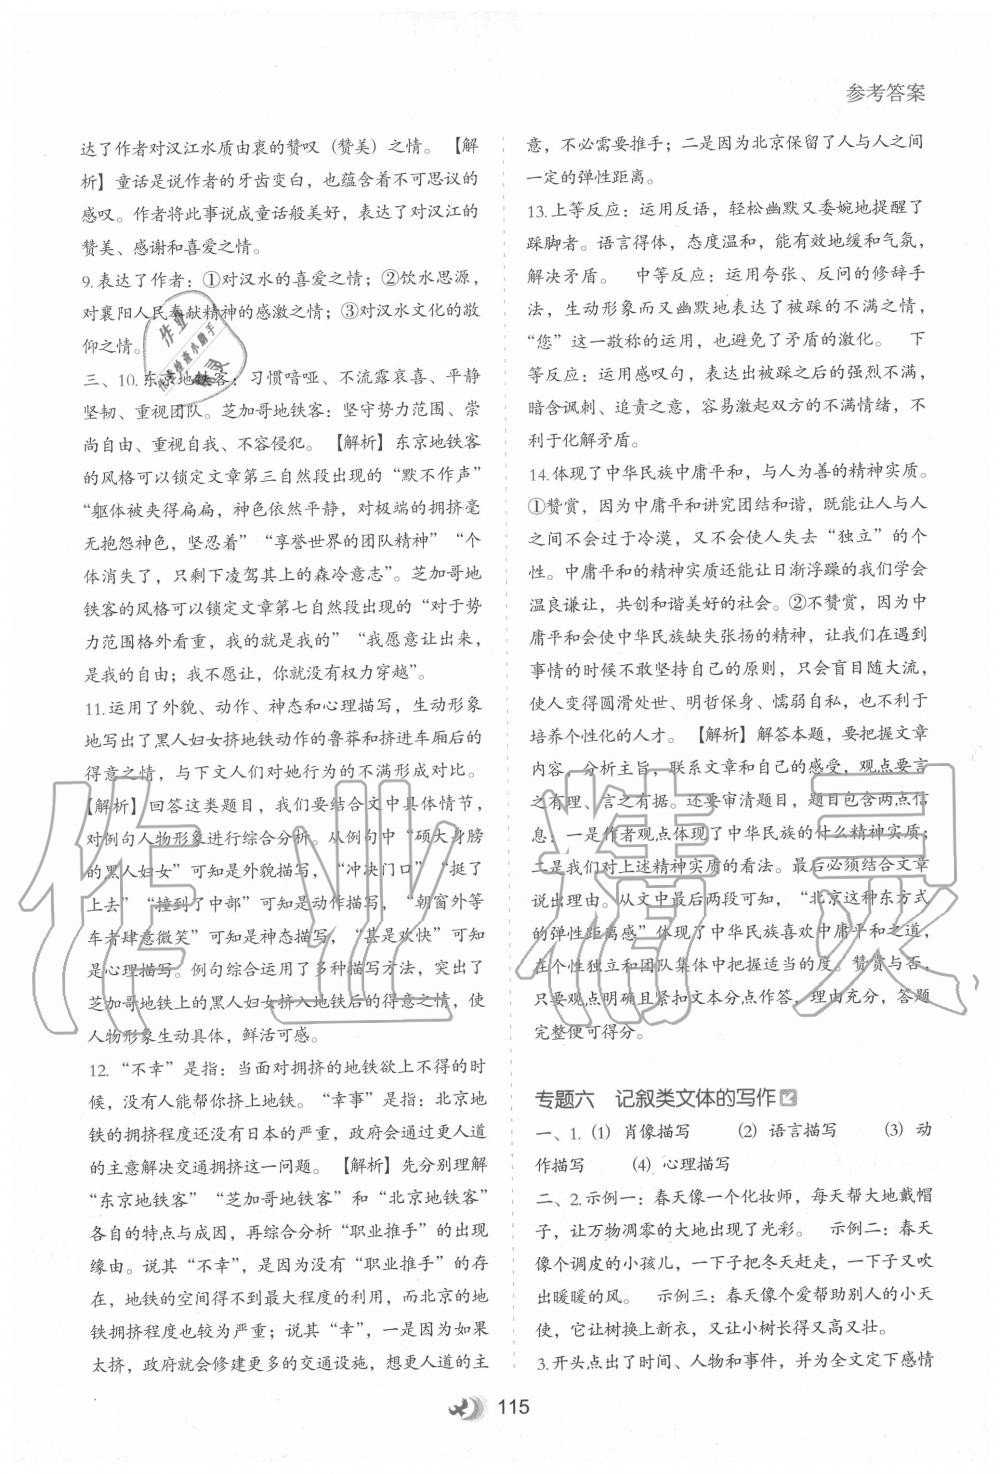 参考答案
达了作者对汉江水质由衷的赞叹（赞美）之情。【解
析】童话是说作者的牙齿变白，也蕴含着不可思议的
感叹。作者将此事说成童话般美好，表达了对汉江的
赞美、感谢和喜爱之情。
9.表达了作者：①对汉水的喜爱之情；②饮水思源，
对襄阳人民奉献精神的感激之情；③对汉水文化的敬
仰之情。
三、10.东京地铁客：习惯喑哑、不流露哀喜、平静
坚韧、重视团队。芝加哥地铁客：坚守势力范围、崇
尚自由、重视自我、不容侵犯。【解析】东京地铁客
的风格可以锁定文章第三自然段出现的“默不作声”
“躯体被夹得扁扁，神色依然平静，对极端的拥挤毫
无抱怨神色，坚忍着”“享誉世界的团队精神”“个
体消失了，只剩下凌驾其上的森冷意志”。芝加哥地
铁客的风格可以锁定文章第七自然段出现的“对于势
力范围格外看重，我的就是我的”“我愿意让出来，
是我的自由；我不愿让，你就没有权力穿越”。
11.运用了外貌、动作、神态和心理描写，生动形象
地写出了黑人妇女挤地铁动作的鲁莽和挤进车厢后的
得意之情，与下文人们对她行为的不满形成对比。
【解析】回答这类题目，我们要结合文中具体情节，
对例句人物形象进行综合分析。从例句中“硕大身膀
的黑人妇女”可知是外貌描写，“冲决门口”“挺了
上去”“撞到了中部”可知是动作描写，“朝窗外等
车者肆意微笑”可知是神态描写，“甚是欢快”可知
是心理描写。例句综合运用了多种描写方法，突出了
芝加哥地铁上的黑人妇女挤入地铁后的得意之情，使
人物形象生动具体，鲜活可感。
12.“不幸”是指：当面对拥挤的地铁欲上不得的时
候，没有人能帮你挤上地铁。“幸事”是指：北京地
铁的拥挤程度还没有日本的严重，政府会通过更人道
的主意解决交通拥挤这一问题。【解析】先分别理解
“东京地铁客”“芝加哥地铁客”和“北京地铁客”
各自的特点与成因，再综合分析“职业推手”的出现
缘由。说其“不幸”，是因为没有“职业推手”的存
在，地铁的空间得不到最大程度的利用，而北京的地
铁拥挤程度也较为严重；说其“幸”，一是因为如果
太挤，政府就会修建更多的交通设施，想更人道的主
意，不必需要推手；二是因为北京保留了人与人之间
一定的弹性距离。
13.上等反应：运用反语，轻松幽默又委婉地提醒了
踩脚者。语言得体，态度温和，能有效地缓和气氛，
解决矛盾。 中等反应：运用夸张、反问的修辞手
法，生动形象而又幽默地表达了被踩的不满之情，
“您”这一敬称的运用，也避免了矛盾的激化。 下
等反应：运用感叹句，表达出被踩之后的强烈不满，
暗含讽刺、追责之意，容易激起双方的不满情绪，不
利于化解矛盾。
14.体现了中华民族中庸平和，与人为善的精神实质。
①赞赏，因为中庸平和讲究团结和谐，既能让人与人
之间不会过于冷漠，又不会使人失去“独立”的个
性。中庸平和的精神实质还能让日渐浮躁的我们学会
温良谦让，共创和谐美好的社会。②不赞赏，因为中
庸平和会使中华民族缺失张扬的精神，让我们在遇到
事情的时候不敢坚持自己的原则，只会盲目随大流，
使人变得圆滑处世、明哲保身、懦弱自私，也不利于
培养个性化的人才。【解析】解答本题，要把握文章
内容，分析主旨，联系文章和自己的感受，观点要言
之有理、言之有据。还要审清题目，题目包含两点信
息：一是作者观点体现了中华民族的什么精神实质；
二是我们对上述精神实质的看法。最后必须结合文章
说出理由。从文中最后两段可知，“北京这种东方式
的弹性距离感”体现了中华民族喜欢中庸平和之道，
在个性独立和团队集体中把握适当的度。赞赏与否，
只要观点明确且紧扣文本分点作答，理由充分，答题
完整便可得分。
专题六 记叙类文体的写作
一、1.(1) 肖像描写 (2) 语言描写 (3) 动
作描写 (4) 心理描写
二、2.示例一：春天像一个化妆师，每天帮大地戴帽
子，让万物凋零的大地出现了光彩。 示例二：春天
像个调皮的小孩儿，一下子把冬天赶走，一下子又吹
出暖暖的风。 示例三：春天像个爱帮助别人的小天
使，它让树换上新衣，又让小树长得又高又壮。
3.开头点出了时间、人物和事件，并为全文定下感情
115
作业精灵